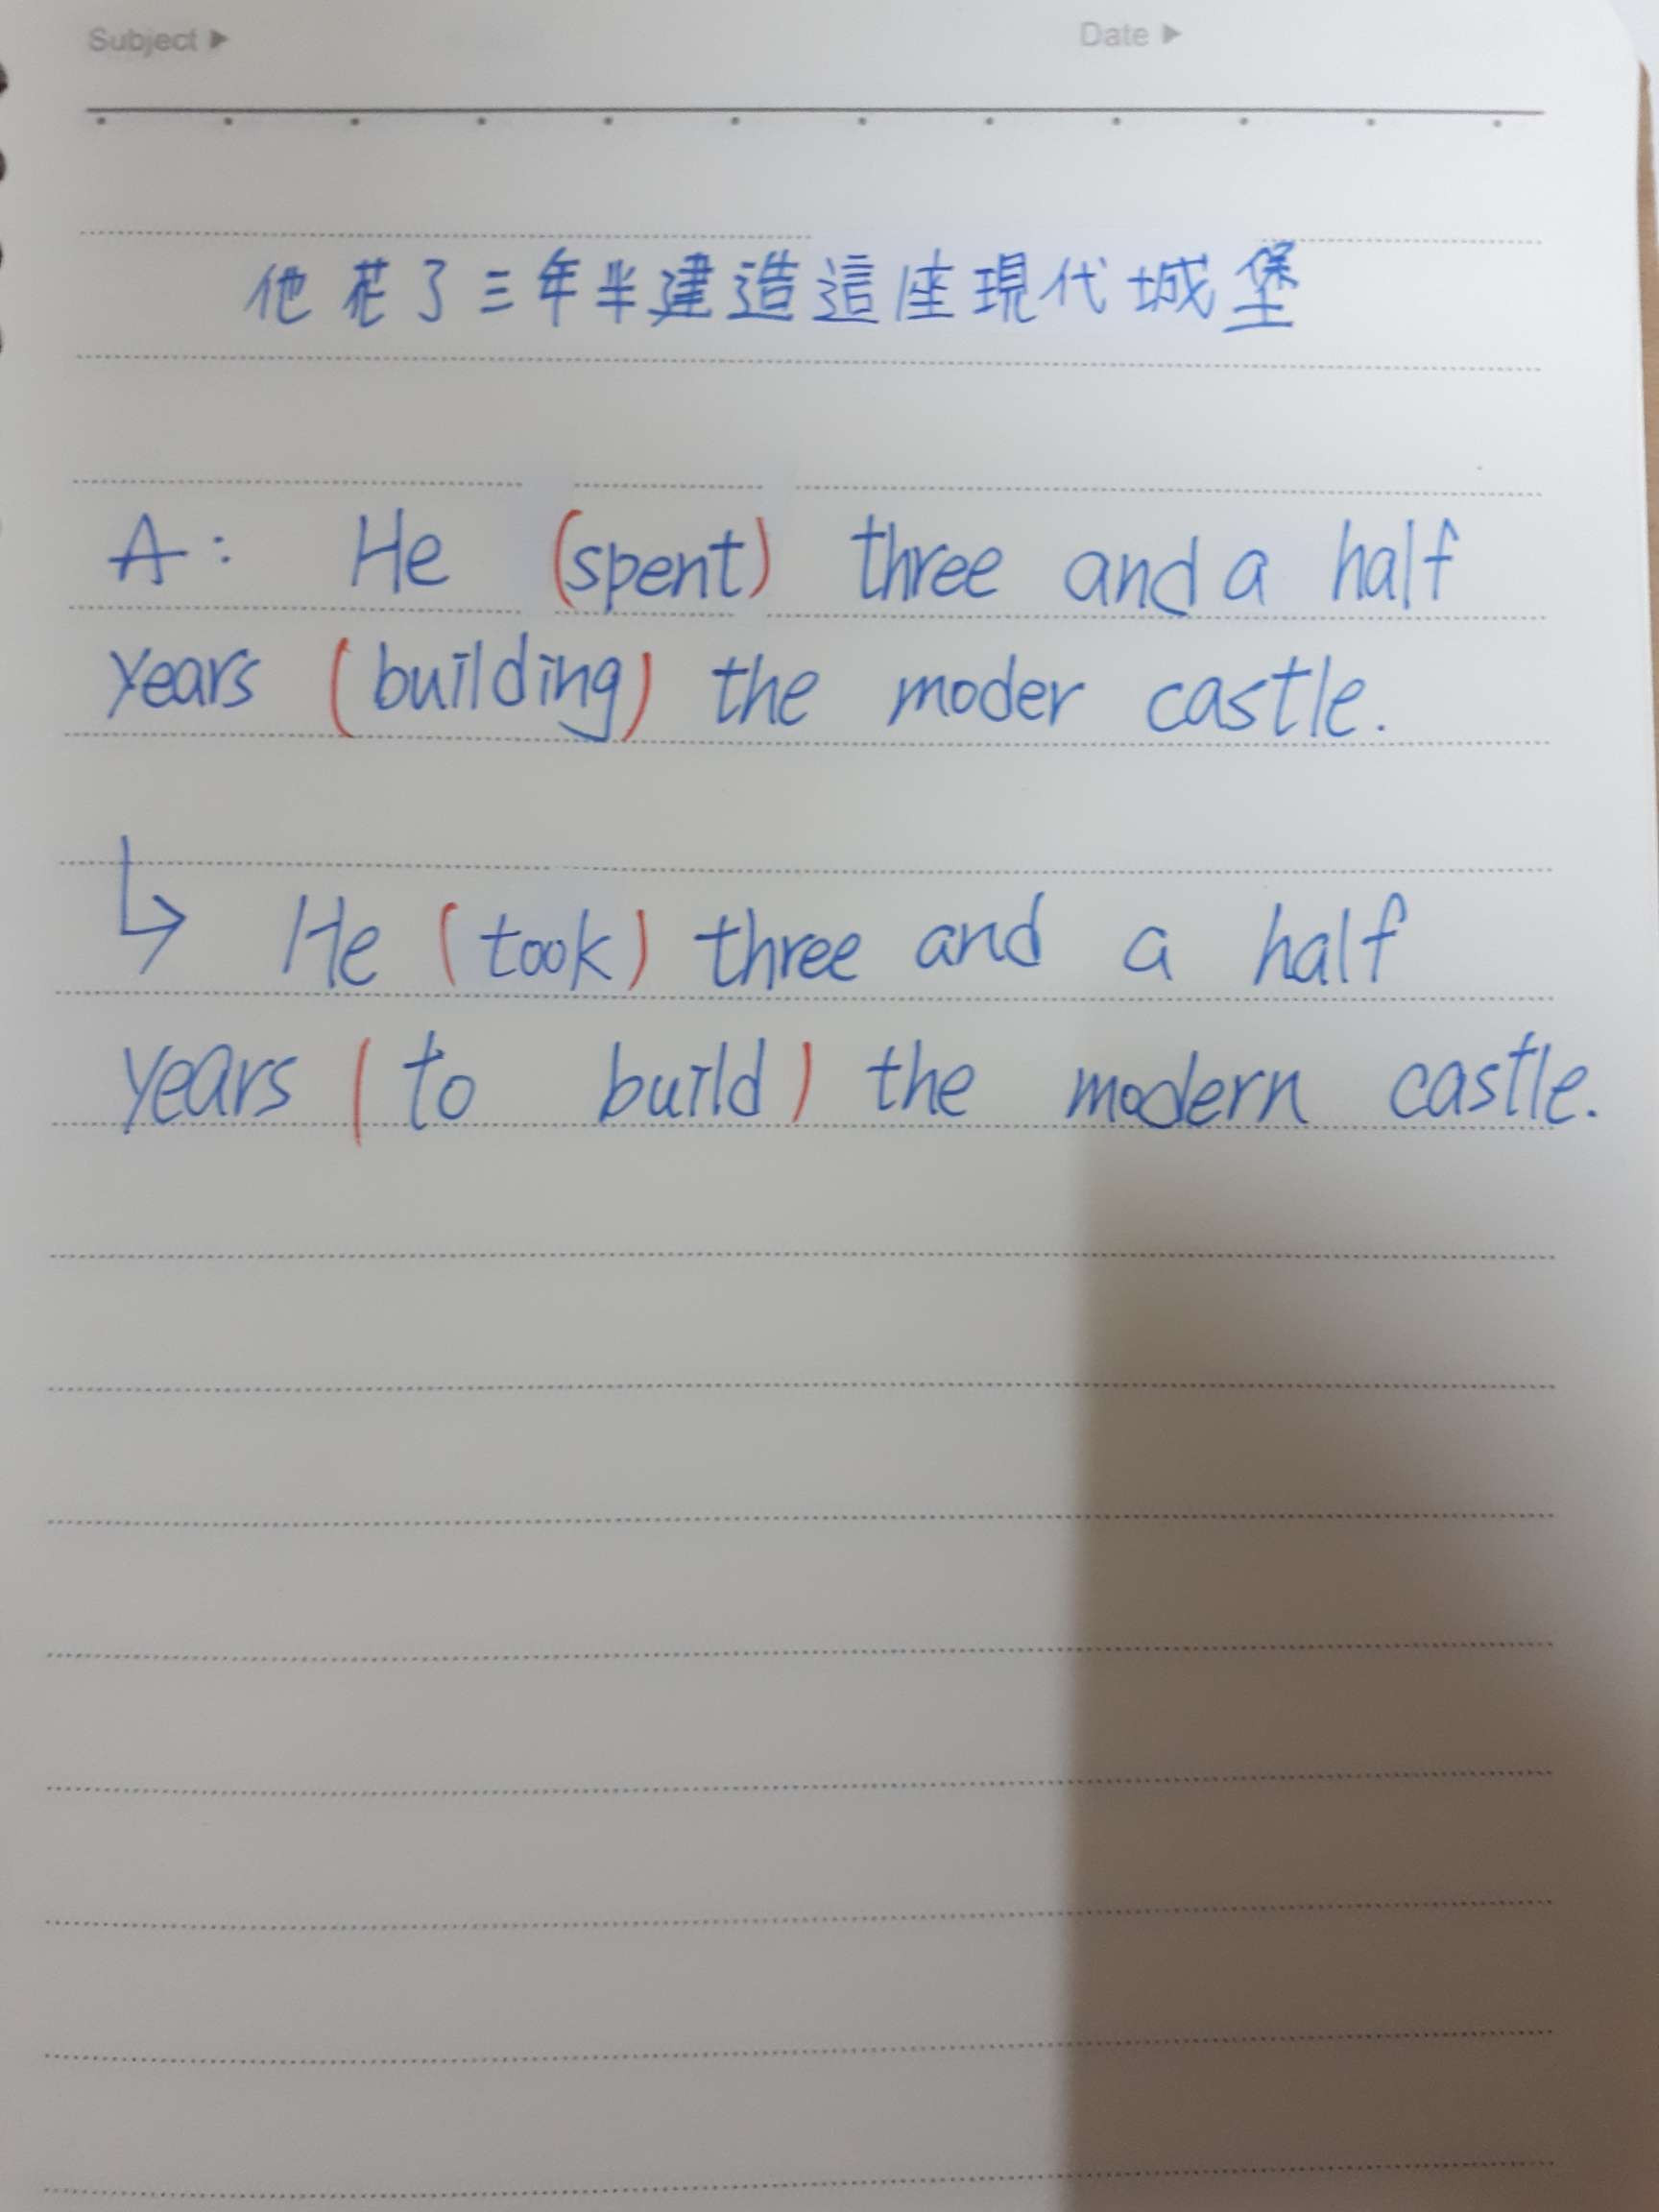 Subject ▶ Date ▶
他花了三年半建造這座現代城堡
A: He (spent) three and a half
years (building) the moder castle.
↳ He (took) three and a half
years (to build) the modern castle.